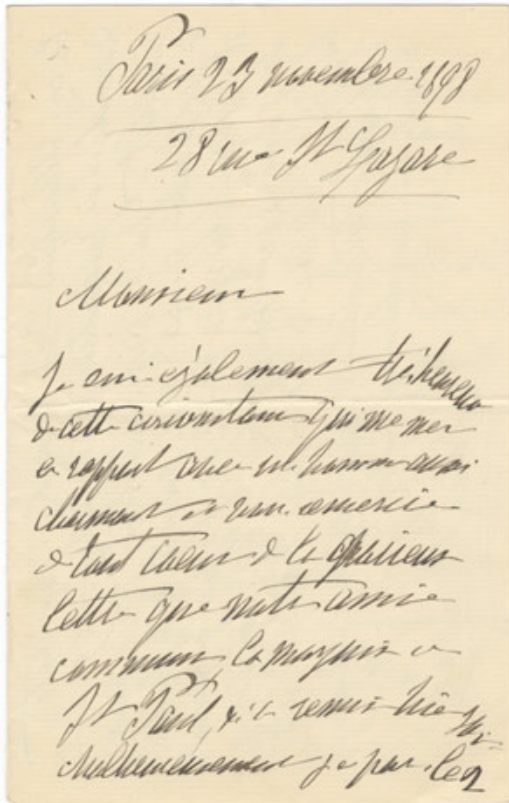 Paris 23 novembre 1898
28 rue St Lazare
Monsieur
Je suis également très heureux
de cette circonstance qui me met
en rapport avec un homme aussi
charmant et vous remercie
de tout coeur de la gracieuse
lettre que notre amie
commune, la marquise de
St Paul, m'a remise hier soir
Malheureusement je pars le 2